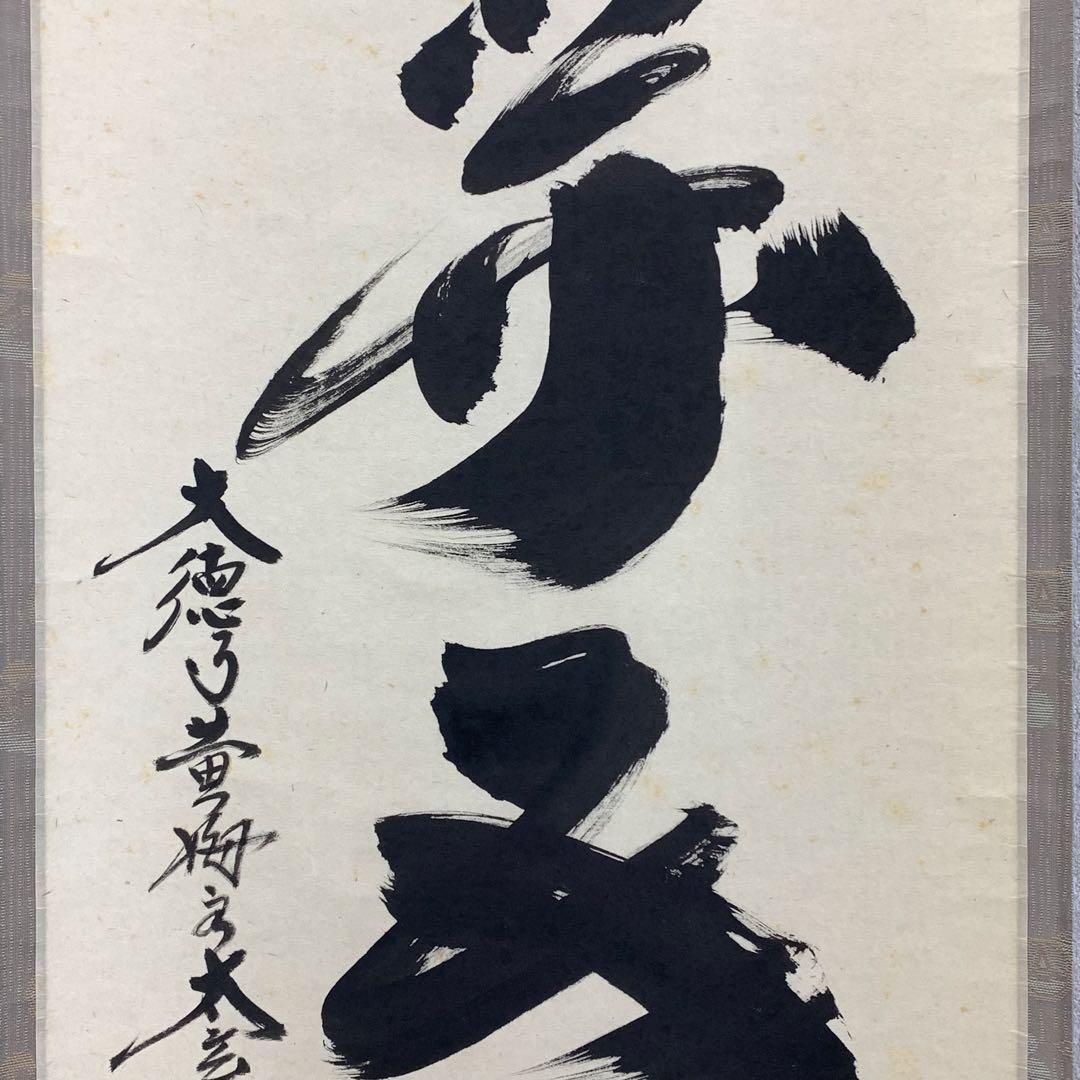 茶去
大徳寺黄梅院太玄